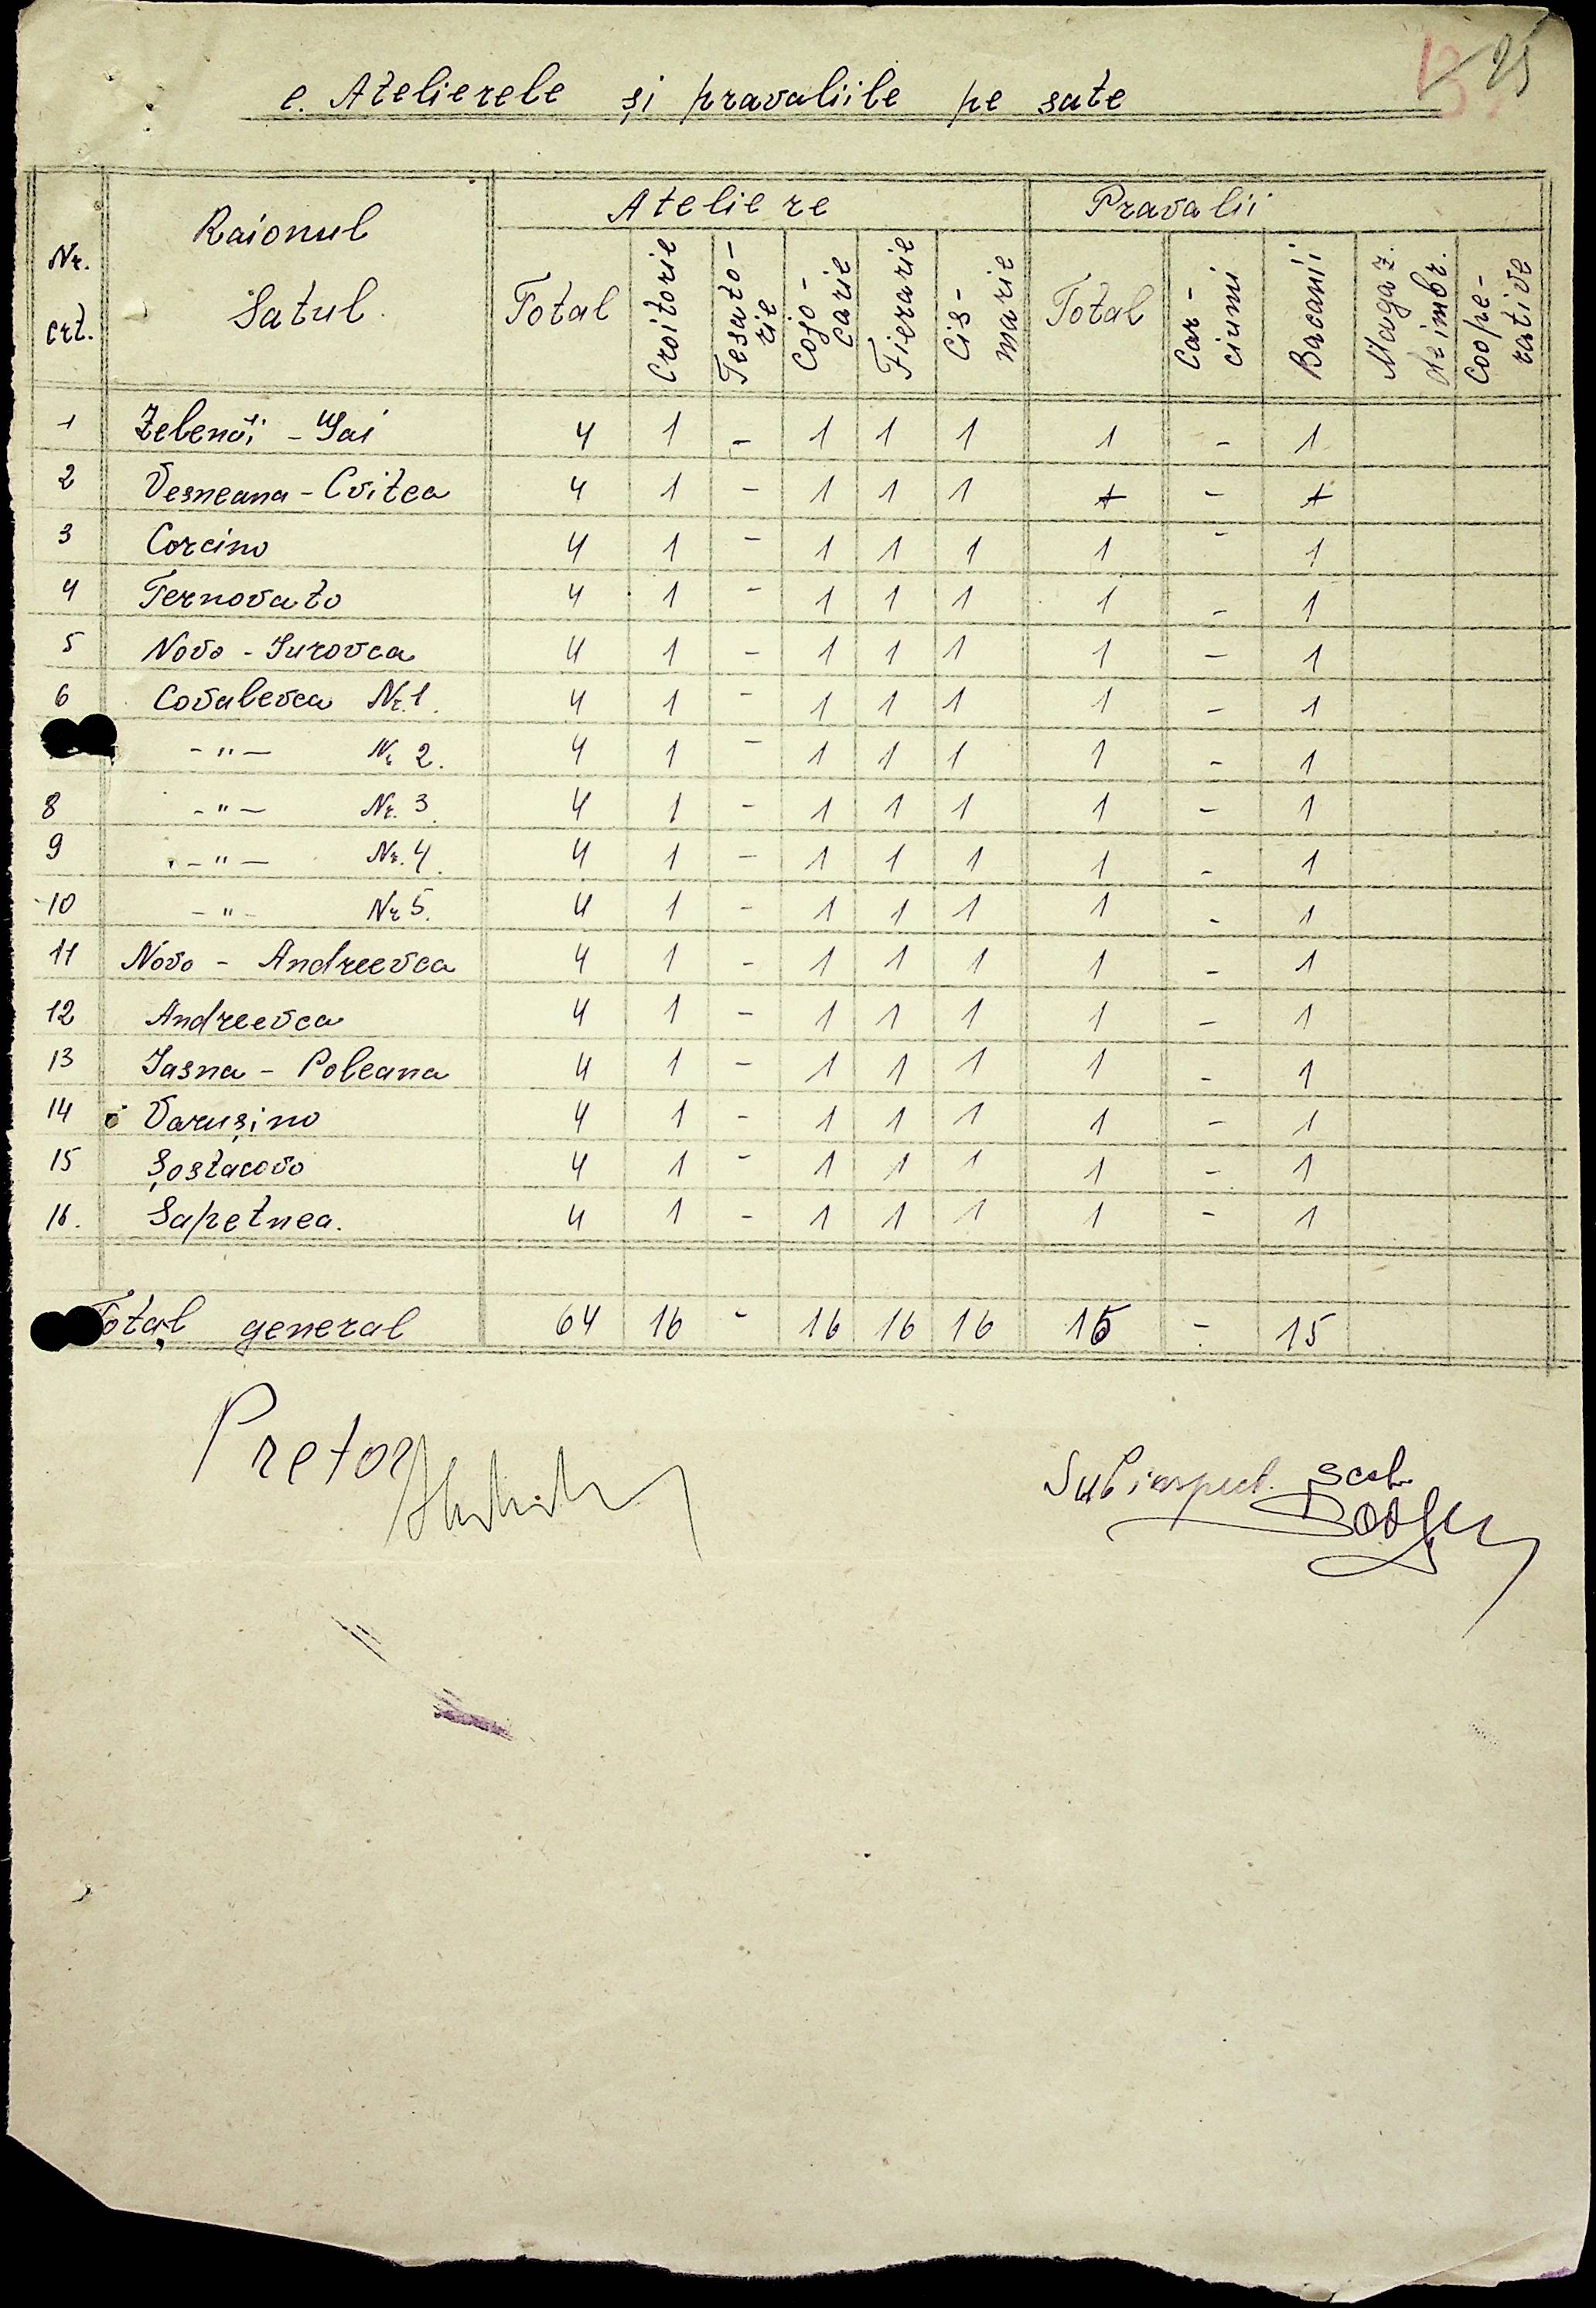 25
e. Atelierele și pravaliile pe sate
Nr. crt. | Raionul Satul | Ateliere | Pravalii
Total | Croitorie | Tesato-rie | Cojo-carie | Fierarie | Cis-marie | Total | Car-ciumi | Bacanii | Magaz. de imbr. | Coope-rative
1 Zelenâi - Gai 4 1 - 1 1 1 1 - 1
2 Vesneana - Cvitca 4 1 - 1 1 1 + - +
3 Corcino 4 1 - 1 1 1 1 - 1
4 Ternovato 4 1 - 1 1 1 1 - 1
5 Novo - Iurovca 4 1 - 1 1 1 1 - 1
6 Covalevca Nr. 1. 4 1 - 1 1 1 1 - 1
- " - Nr 2. 4 1 - 1 1 1 1 - 1
8 - " - Nr. 3. 4 1 - 1 1 1 1 - 1
9 - " - Nr. 4. 4 1 - 1 1 1 1 - 1
10 - " - Nr 5. 4 1 - 1 1 1 1 - 1
11 Novo - Andreevca 4 1 - 1 1 1 1 - 1
12 Andreevca 4 1 - 1 1 1 1 - 1
13 Iasna - Poleana 4 1 - 1 1 1 1 - 1
14 Varușino 4 1 - 1 1 1 1 - 1
15 Șostacovo 4 1 - 1 1 1 1 - 1
16. Sapetnea. 4 1 - 1 1 1 1 - 1
Total general 64 16 - 16 16 16 15 - 15
Pretor
Subinspect. scol.